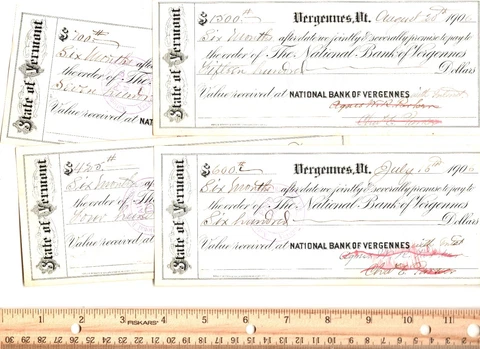 State of Vermont
$ 700 #
Six Months after
the order of The
Seven hundred
Value received at NA
State of Vermont
$ 1500 # Vergennes, Vt. August 190
Six Months after date we jointly & severally promise to pay to
the order of The National Bank of Vergennes
Fifteen hundred Dollars
Value received at NATIONAL BANK OF VERGENNES with
State of Vermont
$ 425 #
Six months
the order of The
Four hundred
Value received at
State of Vermont
$ 600 Vergennes, Vt. July 190
Six months after date we jointly & severally promise to pay to
the order of The National Bank of Vergennes
Six hundred Dollars
Value received at NATIONAL BANK OF VERGENNES with
1 2 3 FISKARS 4 5 6 7 8 9 10 11
30 29 28 27 26 25 24 23 22 21 20 19 18 17 16 15 14 13 12 11 10 9 8 7 6 5 4 3 2